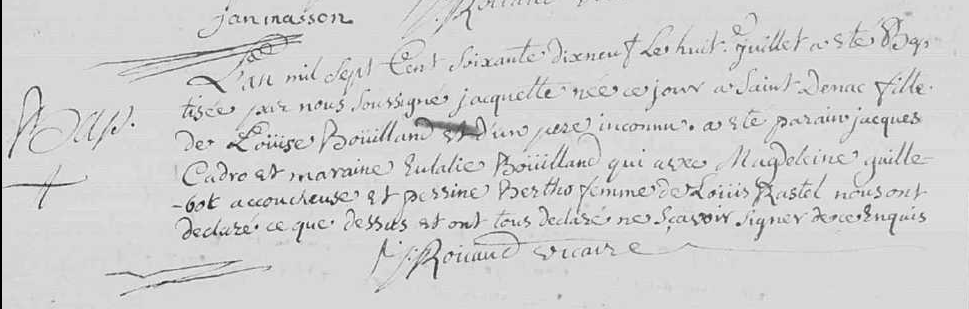 jan masson
L'an mil Sept Cent soixante dixneuf le huit juillet a este Bap
tisée par nous soussigné jacquette née ce jour a Saint Denac fille
de Loüise Boüilland et d'un pere inconnu. a esté parain jacques
Cadro et maraine Eulalie Boüilland qui avec Magdeleine guille-
-bot accoucheuse et perrine Bertho femme de Loüis Rastel nous ont
declaré ce que dessus et ont tous declaré ne sçavoir signer de ce Enquis
Bap.
j. Roüaud vicaire